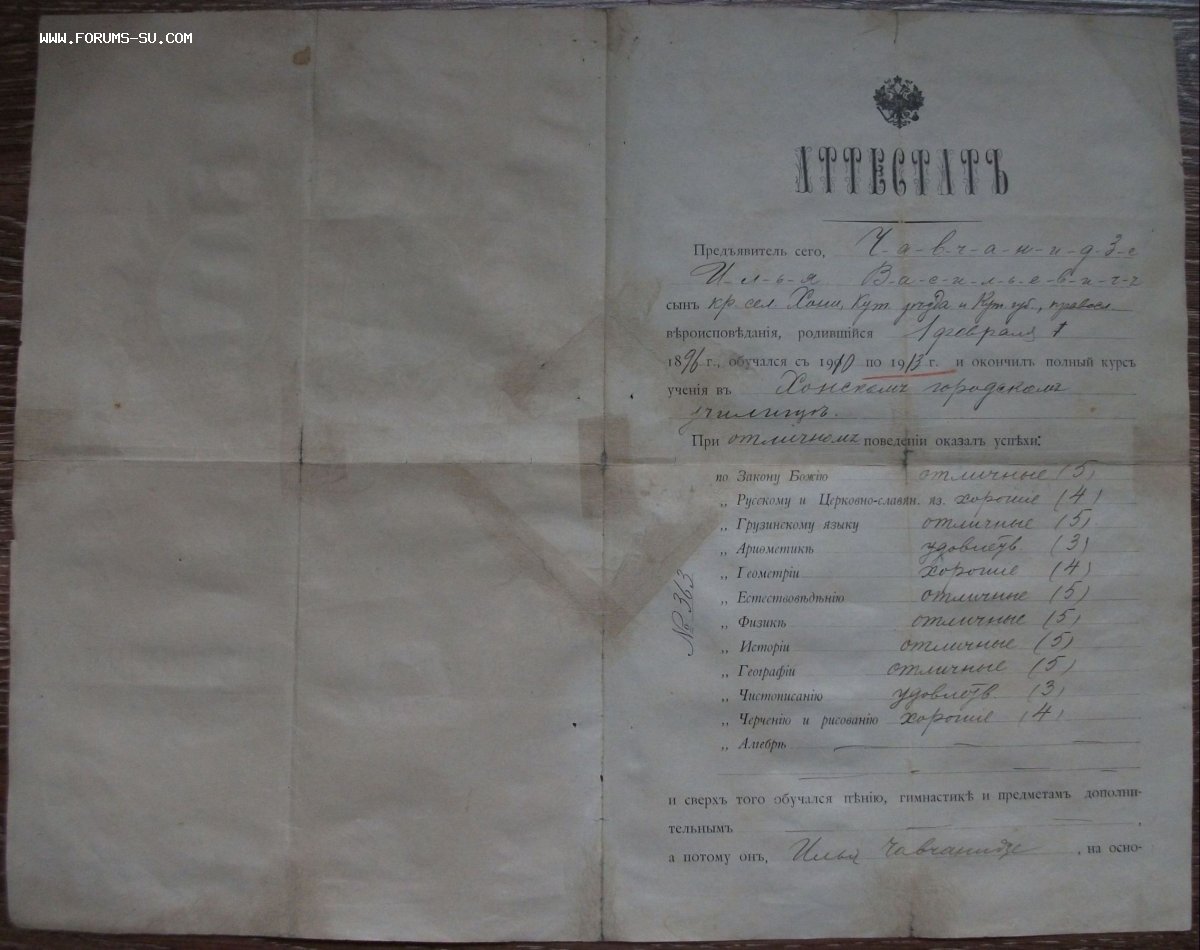 WWW.FORUMS-SU.COM
АТТЕСТАТЪ
Предъявитель сего, Ч-а-в-ч-а-н-и-д-з-е
И-л-ь-я В-а-с-и-л-ь-е-в-и-ч-ъ
сынъ кр. сел. Хони, Кут. уѣзда и Кут. губ., правосл.
вѣроисповѣданія, родившійся 1 февраля
1896 г., обучался съ 1910 по 1913 г. и окончилъ полный курсъ
ученія въ Хонскомъ городскомъ
училищѣ.
При отличномъ поведеніи оказалъ успѣхи:
по Закону Божію отличные (5)
„ Русскому и Церковно-славян. яз. хорошие (4)
„ Грузинскому языку отличные (5)
„ Ариѳметикѣ удовлетв. (3)
„ Геометріи хорошие (4)
„ Естествовѣдѣнію отличные (5)
„ Физикѣ отличные (5)
„ Исторіи отличные (5)
„ Географіи отличные (5)
„ Чистописанію удовлетв. (3)
„ Черченію и рисованію хорошие (4)
„ Алгебрѣ
№ 363
и сверхъ того обучался пѣнію, гимнастикѣ и предметамъ дополни-
тельнымъ
а потому онъ, Илья Чавчанидзе, на осно-